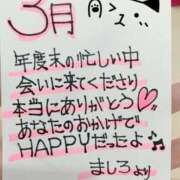 3月
年度末の忙しい中
会いに来てくださり
本当にありがとう♡
あなたのおかげで
HAPPYだったよ♪
ましろより